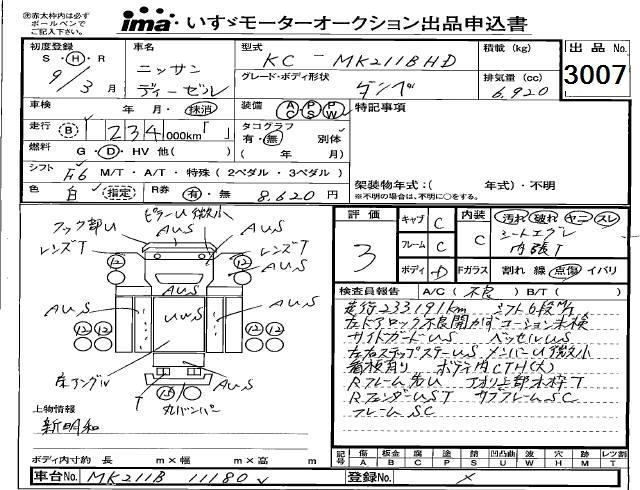 ※赤太枠内は必ず
ボールペンで
ご記入下さい。
ima いすゞモーターオークション出品申込書
初度登録 車名 型式 積載 (kg) 出品No.
S・H・R ニッサン KC - MK211BHD 3007
9/3月 ディーゼル グレード・ボディ形状 ダンプ 排気量 (cc) 6,920
車検 年 月・抹消 装備 AC PS PW 特記事項
走行 B 1234,000km「 」 タコグラフ 有・無 別体
燃料 G・D・HV 他( ) ( 年 月)
シフト F6 M/T・A/T・特殊 (2ペダル・3ペダル) 架装物年式:( 年式)・不明
色 白 (指定) R券 有・無 8,620円 ※不明の場合は、不明に○をする。
フック部U ピラーU微小 AUS
レンズT AUS レンズT
AUS AUS
AUS UWS AUS
床アングル AUS
T リバンパー
上物情報
新明和
ボディ内寸約 長 m×幅 m×高 m
評価 3
キャブ C 内装 C 汚れ 破れ ヤニ スレ
フレーム C シートエグレ
内張T
ボディ D Fガラス 割れ 線 点傷 イバリ
検査員報告 A/C ( 不良 ) B/T ( )
走行233,191km シフト6段M/T
左ドアロック不良開かず コーション未検
サイドガードUS ベッセルUS
左右ステップステーUS メンバーU微小
看板角リ ボディ内CTH(大)
Rフレーム洗い アオリ上部木枠T
RフェンダーUST サブフレームSC
フレームSC
記号 傷A 板金B 腐C 塗P 錆S 凹凸曲U 波W 穴H 跡M タTレツ割
車台No. MK211B 11180 登録No. ×